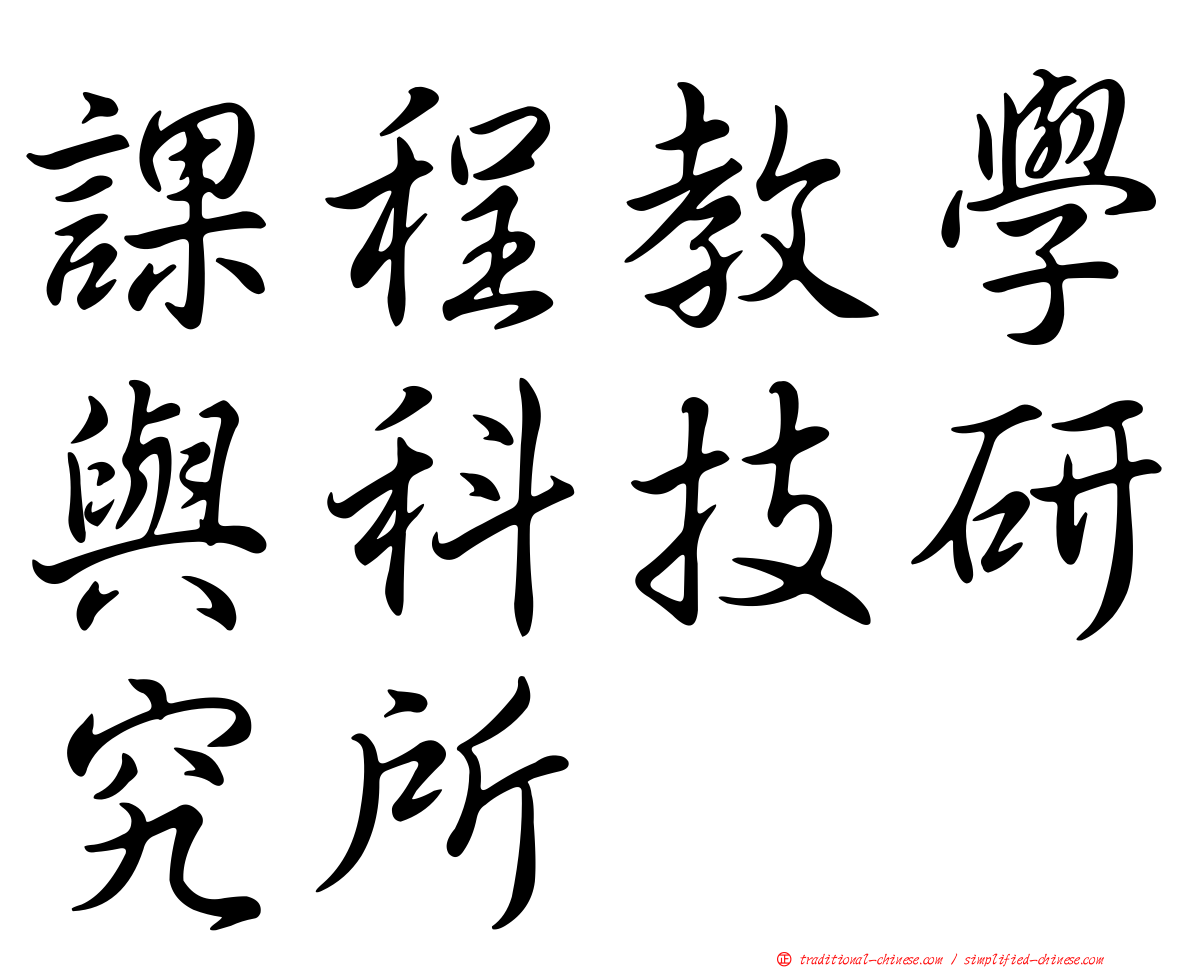 課程教學
與科技研
究所
㊣ traditional-chinese.com / simplified-chinese.com